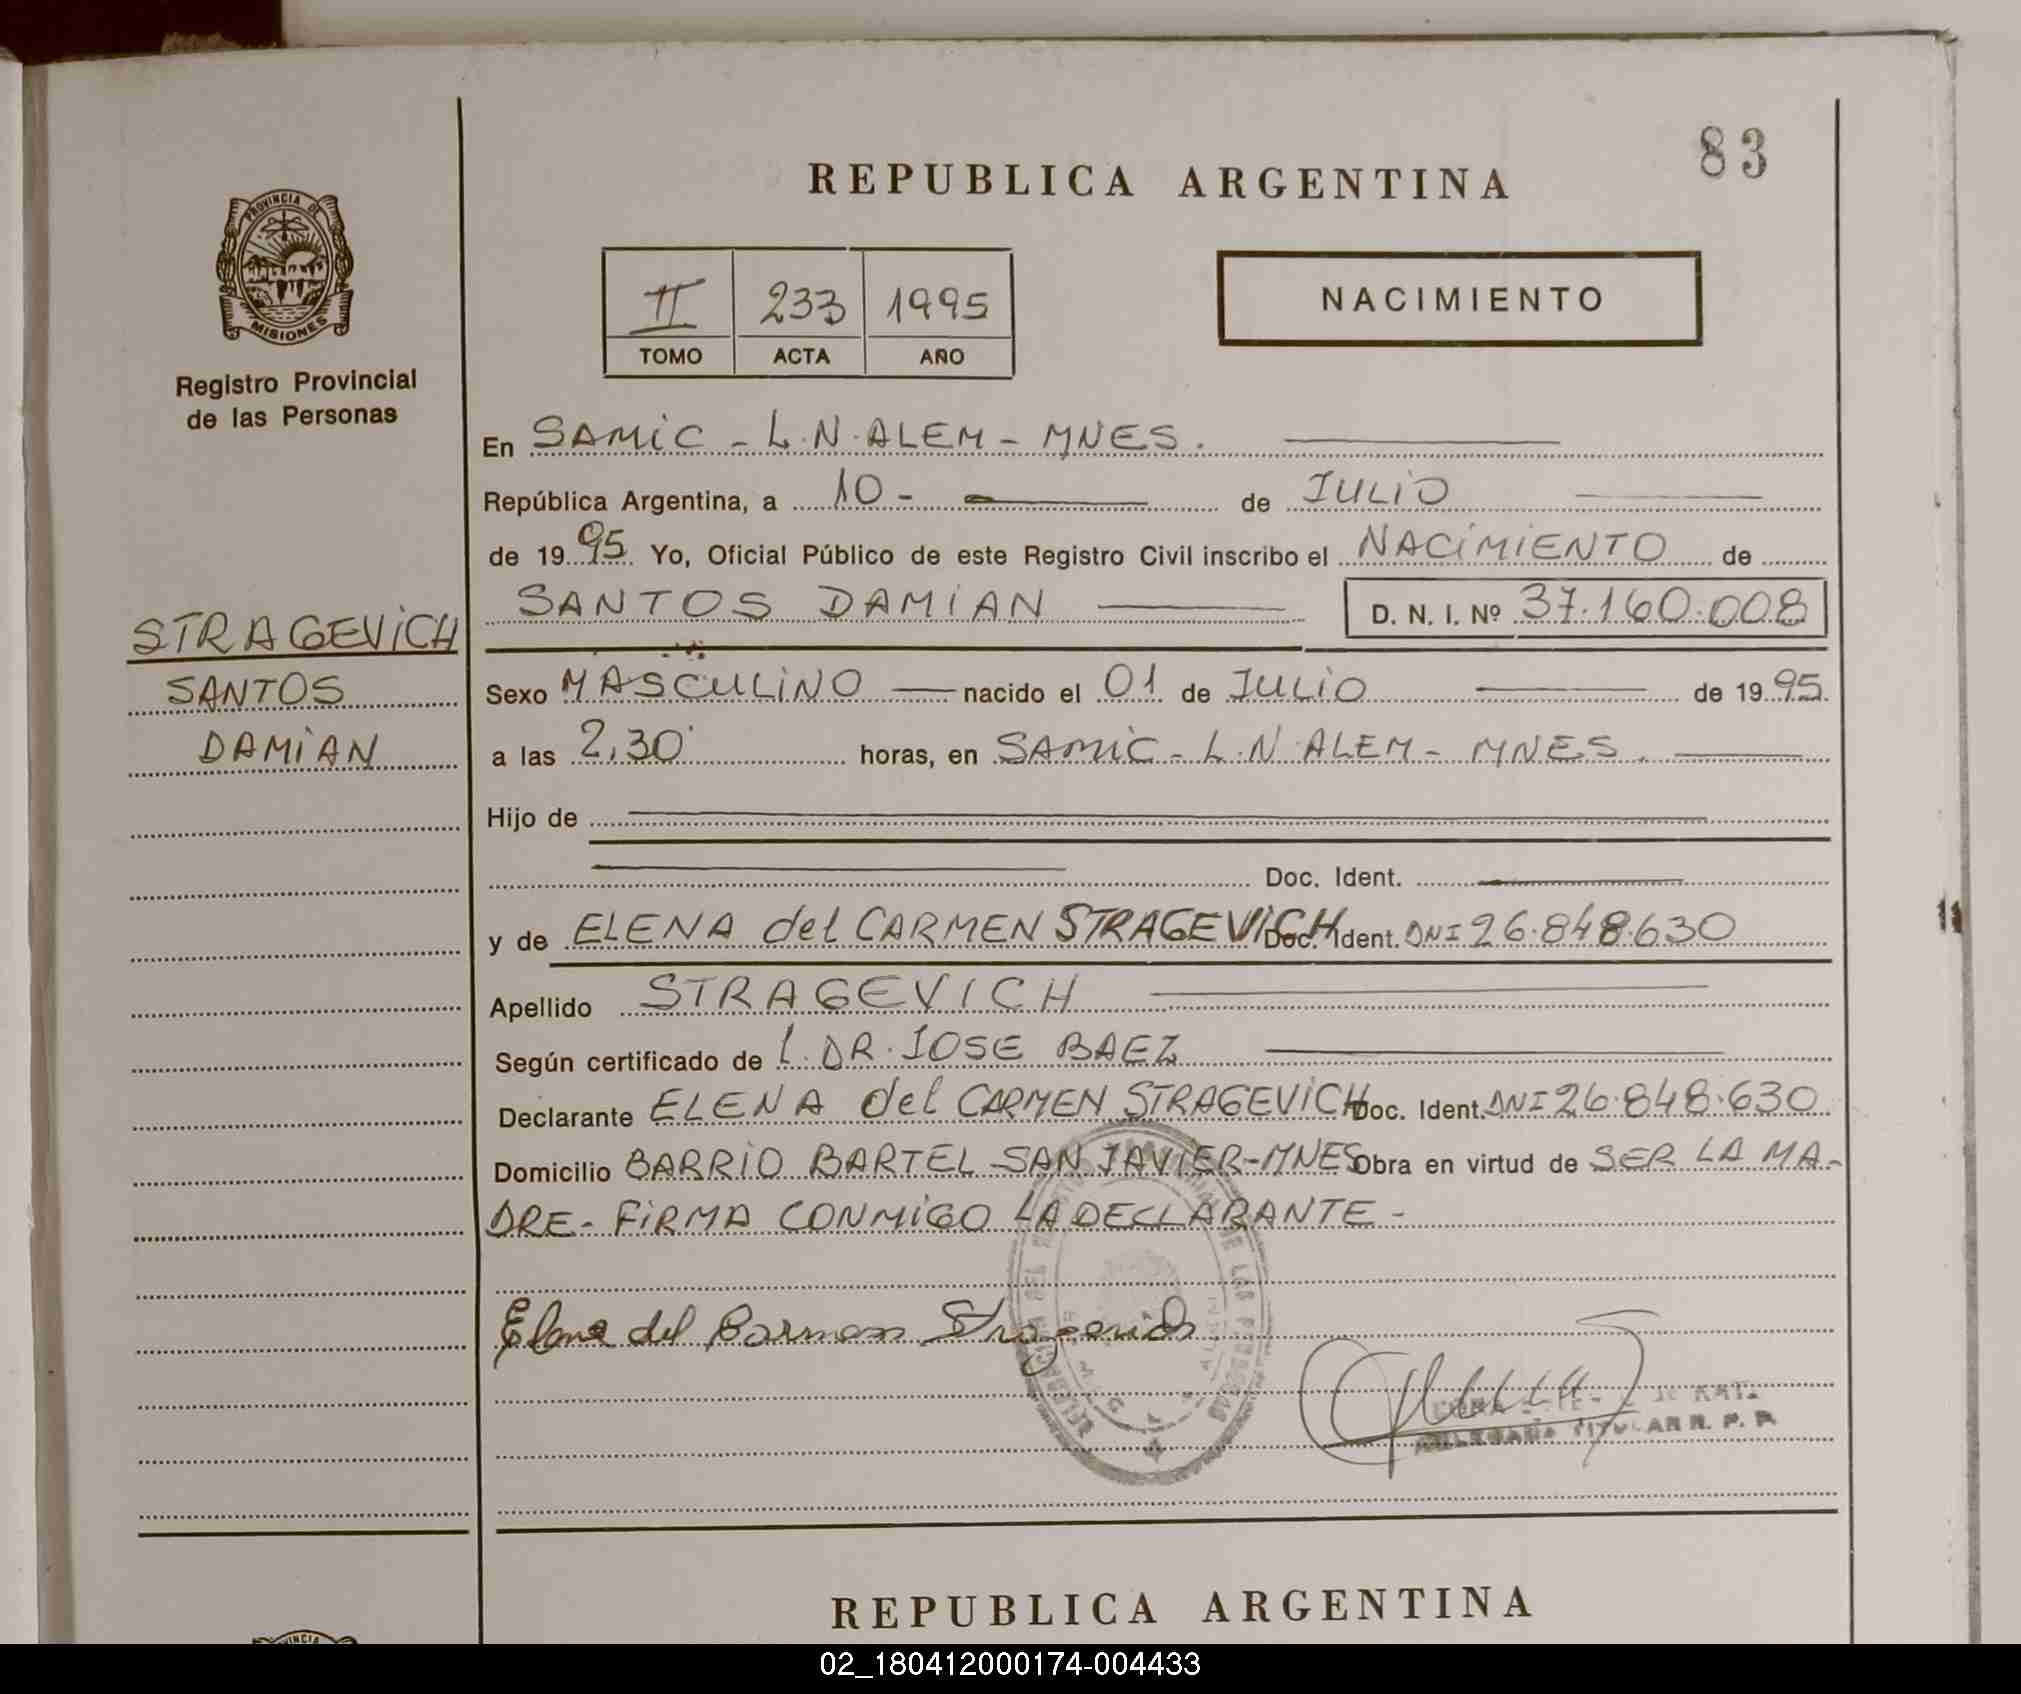 83
REPUBLICA ARGENTINA
PROVINCIA DE
MISIONES
Registro Provincial
de las Personas
II 233 1995
TOMO ACTA AÑO
NACIMIENTO
En SAMIC - L.N. ALEM - MNES.
República Argentina, a 10 - de JULIO
de 1995 Yo, Oficial Público de este Registro Civil inscribo el NACIMIENTO de
SANTOS DAMIAN D. N. I. Nº 37.160.008
STRAGEVICH
SANTOS
DAMIAN
Sexo MASCULINO nacido el 01 de JULIO de 1995.
a las 2,30 horas, en SAMIC - L.N. ALEM - MNES.
Hijo de
Doc. Ident.
y de ELENA del CARMEN STRAGEVICH Doc. Ident. DNI 26.848.630
Apellido STRAGEVICH
Según certificado de L. DR. JOSE BAEZ
Declarante ELENA del CARMEN STRAGEVICH Doc. Ident. DNI 26.848.630
Domicilio BARRIO BARTEL SAN JAVIER-MNES Obra en virtud de SER LA MA-
DRE - FIRMA CONMIGO LA DECLARANTE -
Elena del Carmen Stragevich
TITULAR R. P. P.
REPUBLICA ARGENTINA
02_180412000174-004433